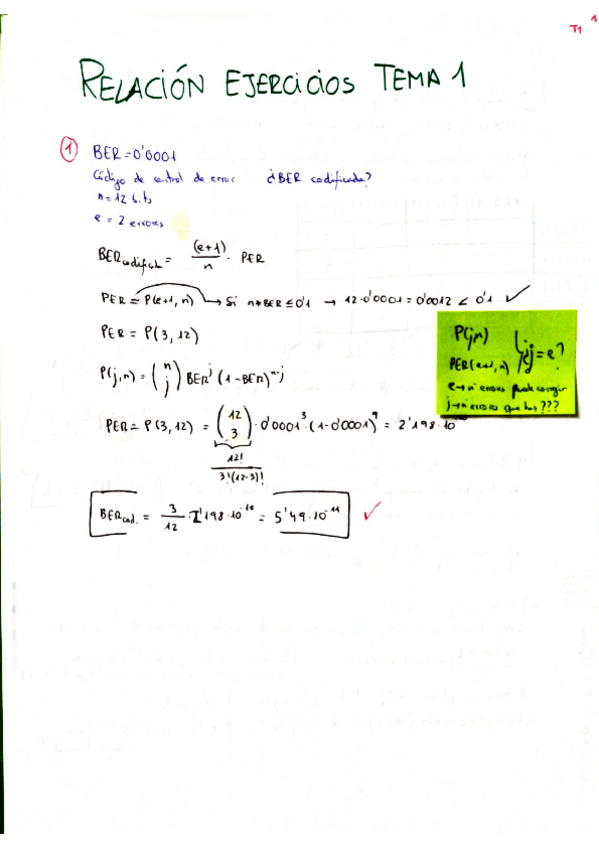 T1 1
RELACIÓN EJERCICIOS TEMA 1
1 BER = 0'0001
Código de control de error ¿BER codificada?
n = 12 bits
e = 2 errores
BERcodificada = (e+1)/n · PER
PER = P(e+1, n) → Si n*BER ≤ 0'1 → 12·0'0001 = 0'0012 < 0'1 ✓
PER = P(3, 12)
P(j,n) = (n j) BER^j (1-BER)^n-j
PER = P(3, 12) = (12 3) · 0'0001^3 · (1-0'0001)^9 = 2'198·10^-10
12!
3!(12-3)!
BERcod. = 3/12 · 2'198·10^-10 = 5'49·10^-11 ✓
P(j,n)
PER(e+1, n) ¿j=e?
e→nº errores puede corregir
j→nº errores que hay???